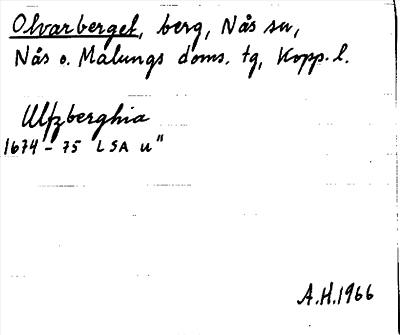 Olvarberget, berg, Nås sn,
Nås o. Malungs doms. tg, Kopp. l.
Ulfzberghia
1674-75 LSA u"
A.H. 1966